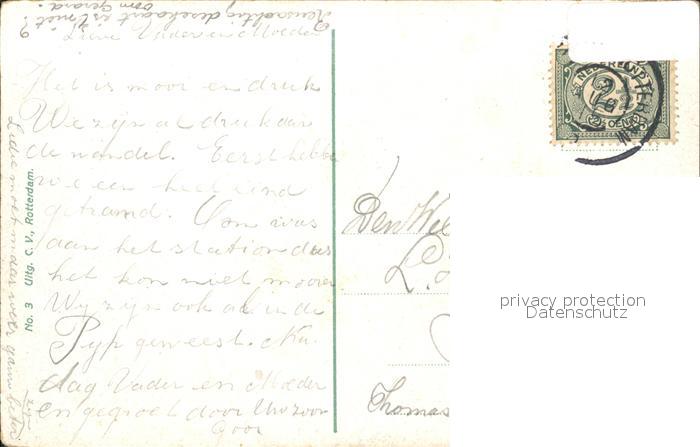 Lieve Vader en Moeder
Het is mooi en druk
We zijn al druk aan
de wandel. Eerst hebben
we een heel eind
getramd. Oom was
aan het station dus
het kon niet mooier
Wij zijn ook al in de
Pijp geweest. Nu
dag Vader en Moeder
en gegroet door Uw zoon
Reusachtig deze kaart is 't niet?
Oom Gerard!
No. 3 Uitg. C. V., Rotterdam.
NEDERLAND
2½
2½ CENT
Den
L.
Thomas
privacy protection
Datenschutz